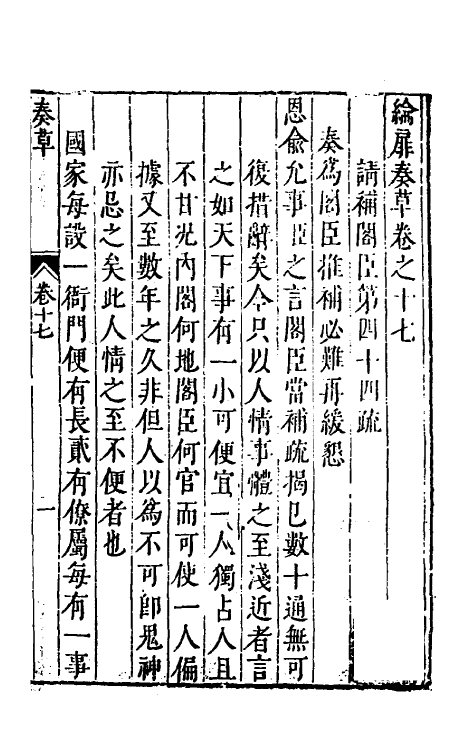 綸扉奏草卷之十七
請補閣臣第四十四疏
奏爲閣臣推補必難再緩懇
恩俞允事臣之言閣臣當補疏揭已數十通無可
復措辭矣今只以人情事體之至淺近者言
之如天下事有一小可便宜一人獨占人且
不甘况內閣何地閣臣何官而可使一人偏
據又至數年之久非但人以爲不可卽鬼神
亦忌之矣此人情之至不便者也
國家每設一衙門便有長貳有僚屬每有一事
奏草
卷十七
一